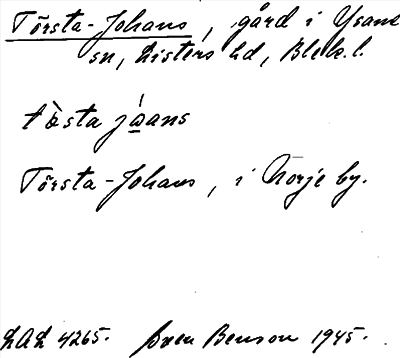 Törsta-Johans, gård i Ysane
sn, Listers hd, Blek. l.
tȯ̀sta jóans
Törsta-Johans, i Norje by.
LAL 4265. Sven Benson 1945.